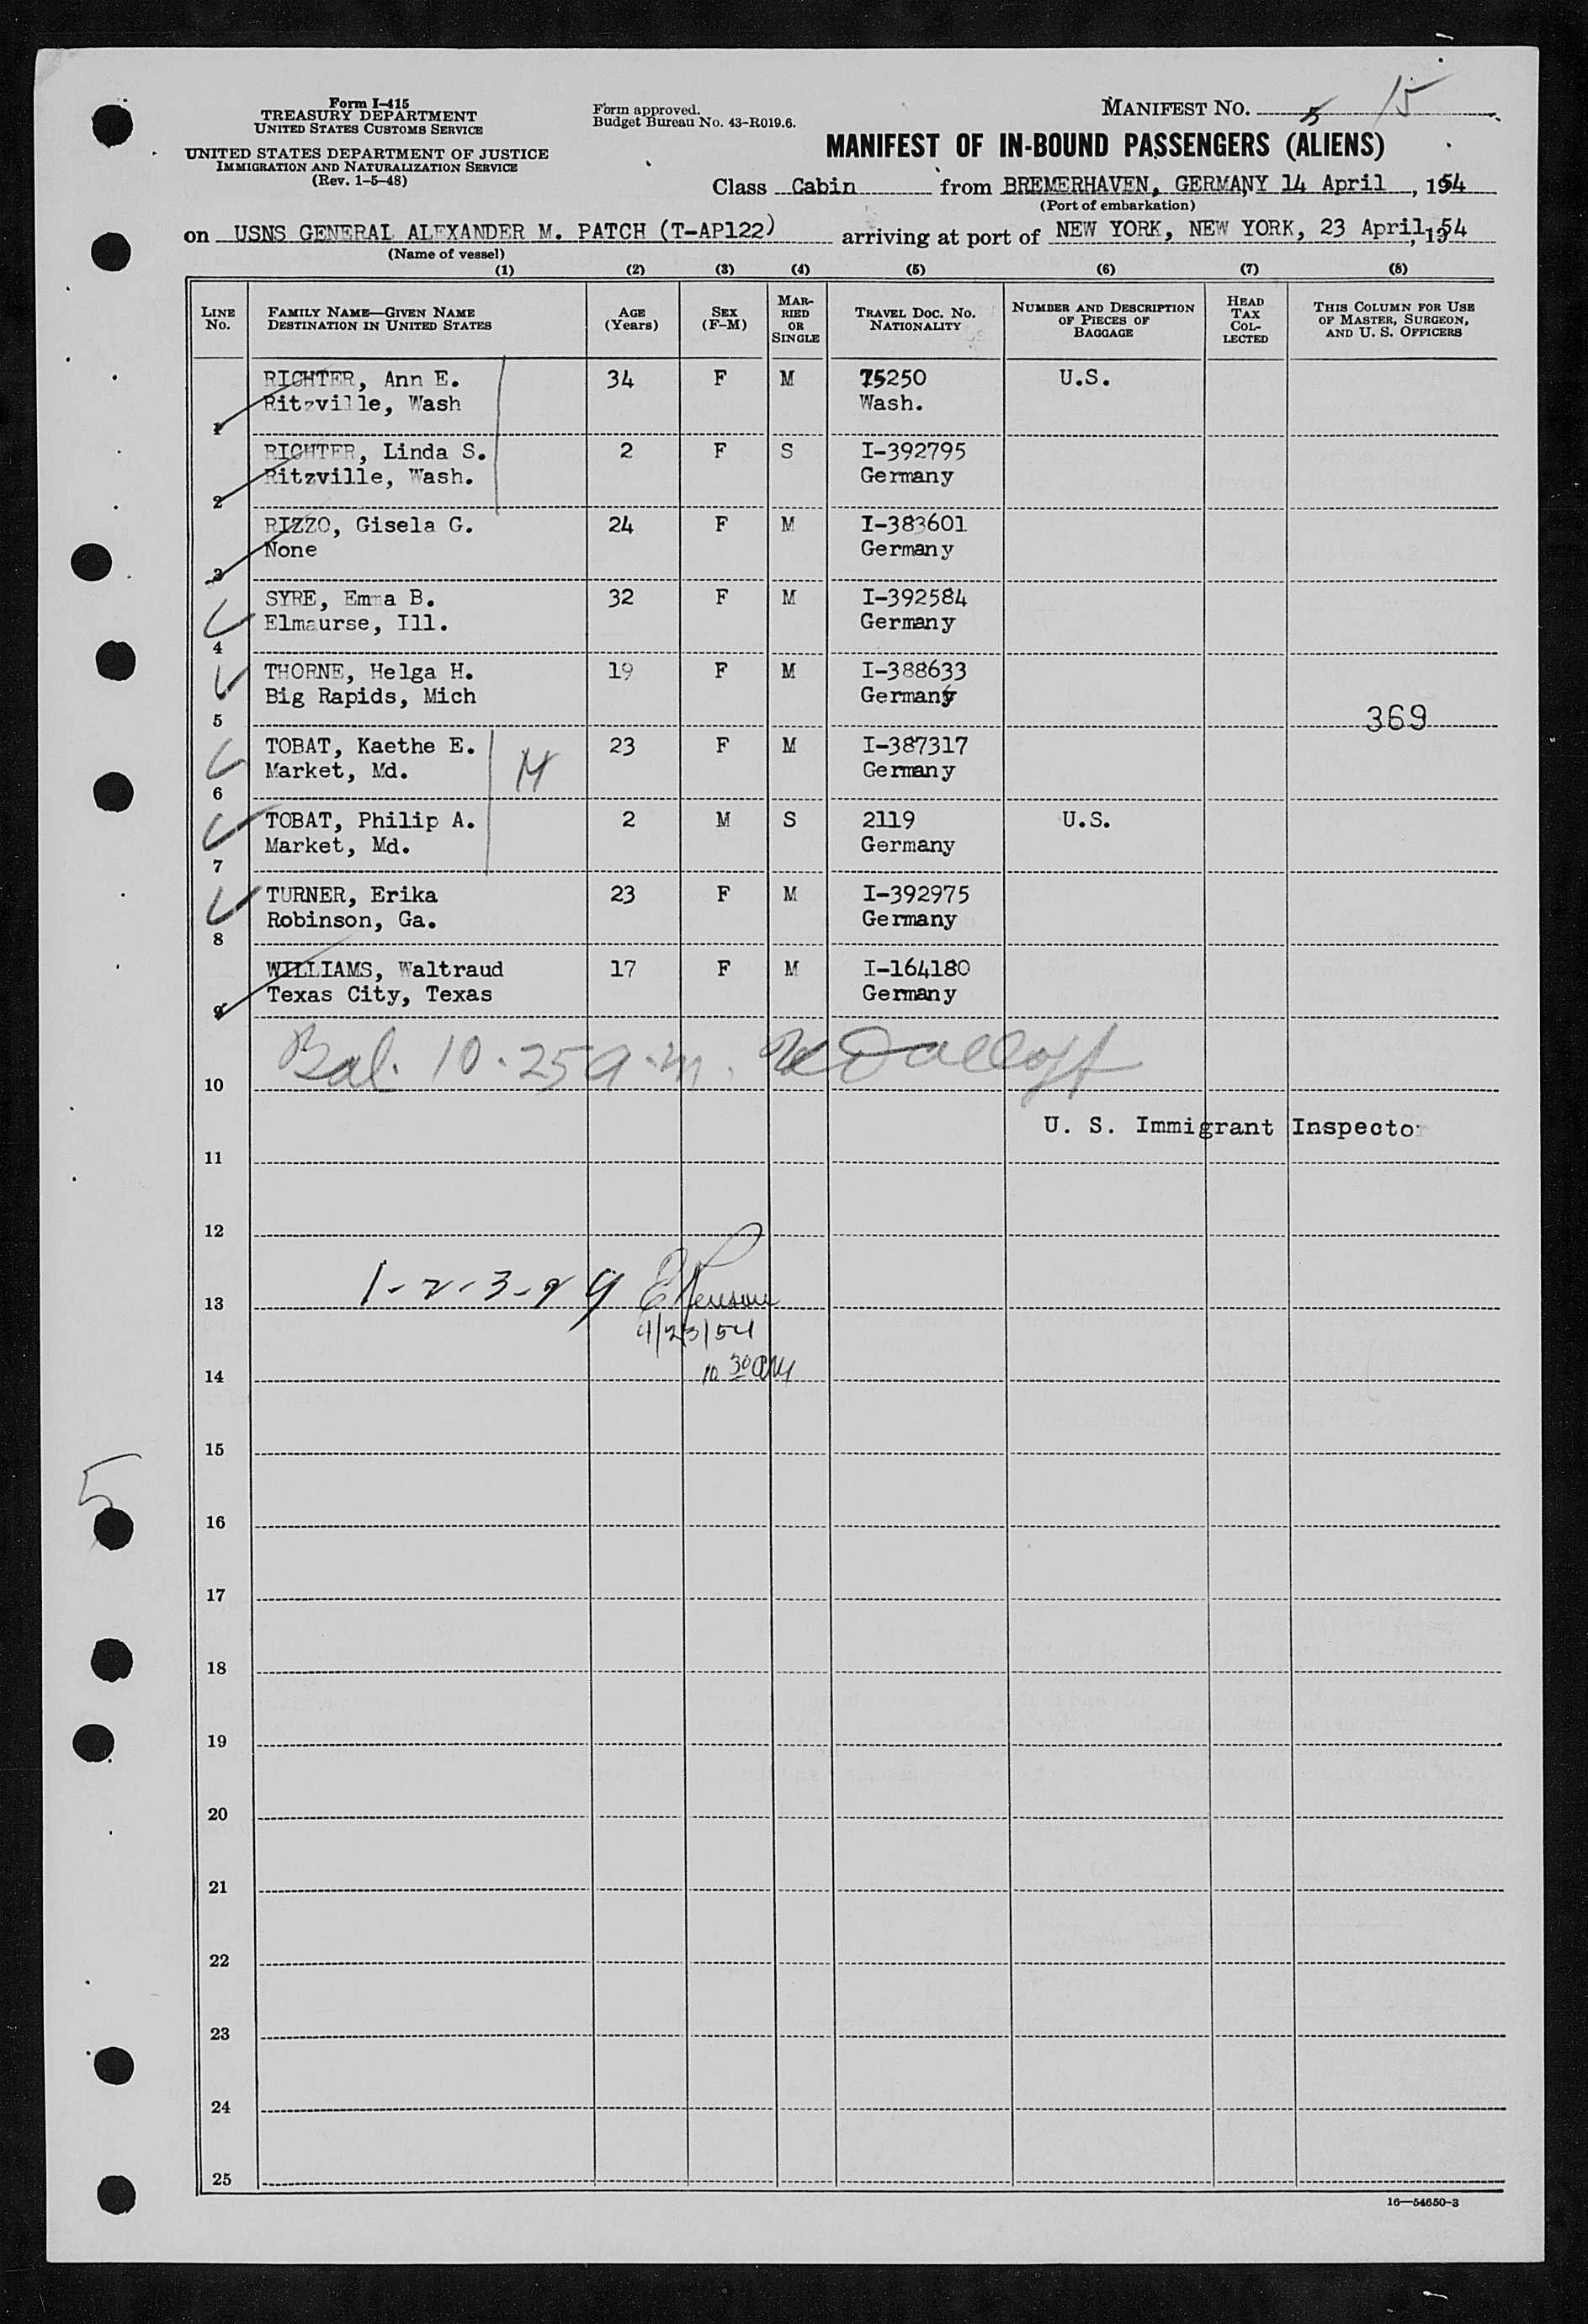 Form I-415
TREASURY DEPARTMENT
UNITED STATES CUSTOMS SERVICE
UNITED STATES DEPARTMENT OF JUSTICE
IMMIGRATION AND NATURALIZATION SERVICE
(Rev. 1-5-48)
Form approved.
Budget Bureau No. 43-R019.6.
MANIFEST NO. 5 15
MANIFEST OF IN-BOUND PASSENGERS (ALIENS)
Class Cabin from BREMERHAVEN, GERMANY 14 April, 1954
(Port of embarkation)
on USNS GENERAL ALEXANDER M. PATCH (T-AP122) arriving at port of NEW YORK, NEW YORK, 23 April, 1954
(Name of vessel)
(1) (2) (3) (4) (5) (6) (7) (8)
LINE No. FAMILY NAME—GIVEN NAME DESTINATION IN UNITED STATES AGE (Years) SEX (F-M) MARRIED OR SINGLE TRAVEL DOC. NO. NATIONALITY NUMBER AND DESCRIPTION OF PIECES OF BAGGAGE HEAD TAX COLLECTED THIS COLUMN FOR USE OF MASTER, SURGEON, AND U. S. OFFICERS
RICHTER, Ann E. 34 F M 75250 U.S.
Ritzville, Wash Wash.
1
RICHTER, Linda S. 2 F S I-392795
Ritzville, Wash. Germany
2
RIZZO, Gisela G. 24 F M I-383601
None Germany
3
SYRE, Emma B. 32 F M I-392584
Elmaurse, Ill. Germany
4
THORNE, Helga H. 19 F M I-388633
Big Rapids, Mich Germany
5 369
TOBAT, Kaethe E. 23 F M I-387317
Market, Md. M Germany
6
TOBAT, Philip A. 2 M S 2119 U.S.
Market, Md. Germany
7
TURNER, Erika 23 F M I-392975
Robinson, Ga. Germany
8
WILLIAMS, Waltraud 17 F M I-164180
Texas City, Texas Germany
9
Bal. 10.25 a.m.
10
U. S. Immigrant Inspector
11
12
1-2-3-9
13
4/23/54
10 30 AM
14
15
5
16
17
18
19
20
21
22
23
24
25
16—54650-3